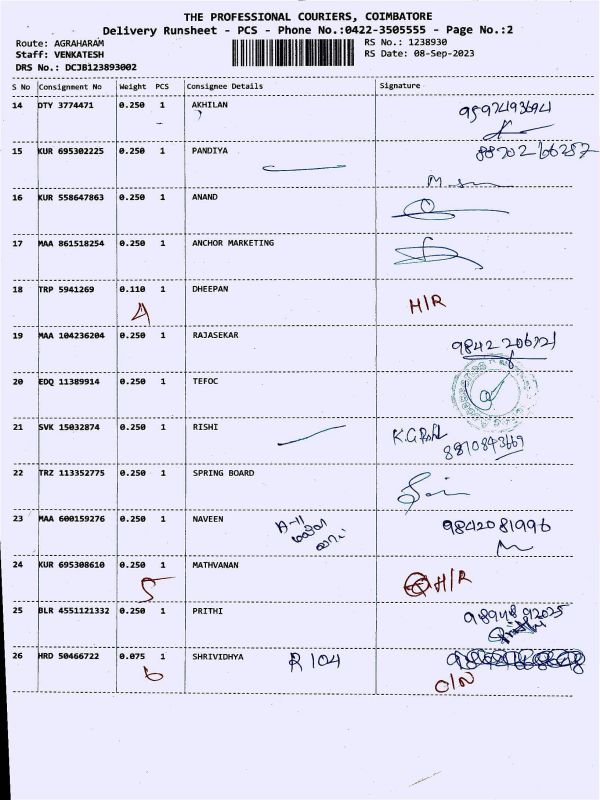 THE PROFESSIONAL COURIERS, COIMBATORE
Delivery Runsheet - PCS - Phone No.:0422-3505555 - Page No.:2
Route: AGRAHARAM
RS No.: 1238930
Staff: VENKATESH
RS Date: 08-Sep-2023
DRS No.: DCJB123893002
S No Consignment No Weight PCS Consignee Details Signature
14 DTY 3774471 0.250 1 AKHILAN
15 KUR 695302225 0.250 1 PANDIYA
16 KUR 558647863 0.250 1 ANAND
17 MAA 861518254 0.250 1 ANCHOR MARKETING
18 TRP 5941269 0.110 1 DHEEPAN
4 H/R
19 MAA 104236204 0.250 1 RAJASEKAR
20 EDQ 11389914 0.250 1 TEFOC
21 SVK 15032874 0.250 1 RISHI
8870843669
22 TRZ 113352775 0.250 1 SPRING BOARD
23 MAA 600159276 0.250 1 NAVEEN A-11 9842081996
24 KUR 695308610 0.250 1 MATHVANAN
5 H/R
25 BLR 4551121332 0.250 1 PRITHI
26 HRD 50466722 0.075 1 SHRIVIDHYA R 104
6 O/N